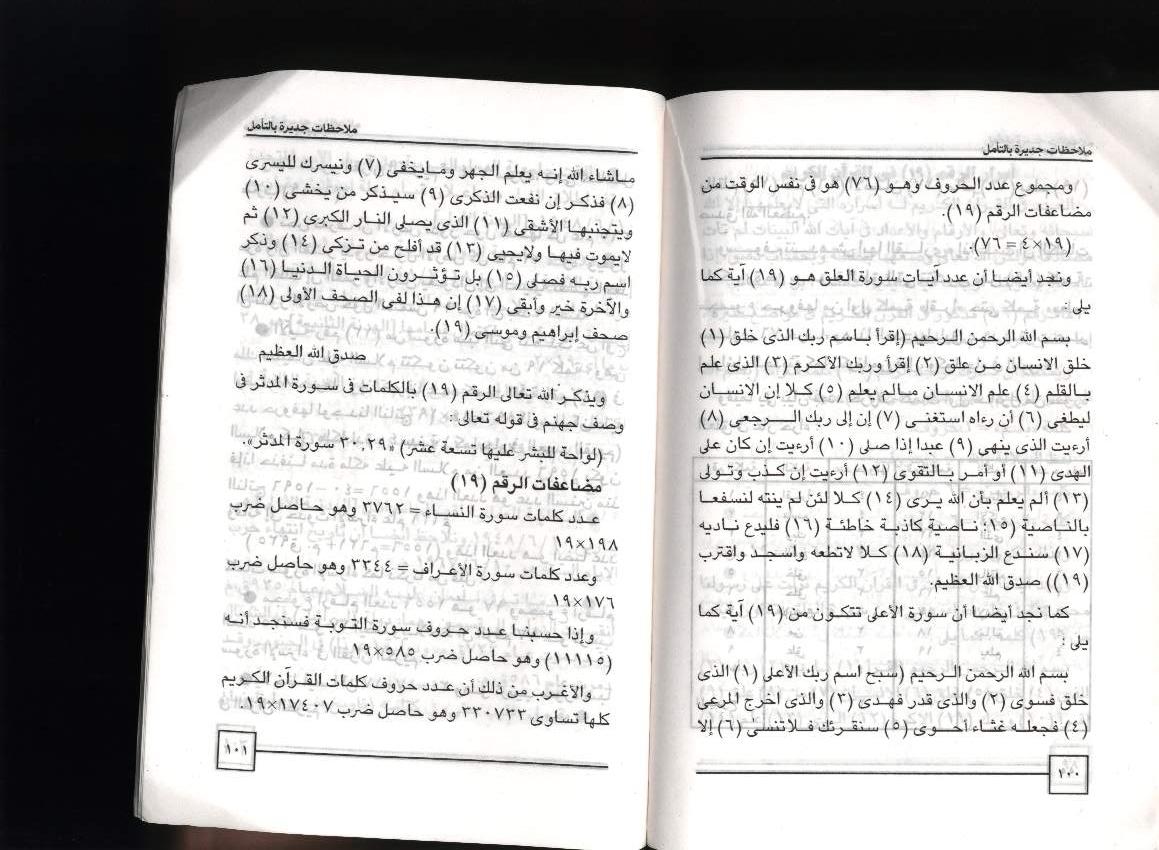 ملاحظات جديرة بالتأمل
ومجموع عدد الحروف وهو (٧٦) هو فى نفس الوقت من
مضاعفات الرقم (١٩).
(١٩×٤ = ٧٦).
ونجد أيضا أن عدد آيات سورة العلق هو (١٩) آية كما
يلى :
بسم الله الرحمن الرحيم (إقرأ باسم ربك الذى خلق (١)
خلق الانسان من علق (٢) إقرأ وربك الأكرم (٣) الذى علم
بالقلم (٤) علم الانسان مالم يعلم (٥) كلا إن الانسان
ليطغى (٦) أن رءاه استغنى (٧) إن إلى ربك الرجعى (٨)
أرءيت الذى ينهى (٩) عبدا إذا صلى (١٠) أرءيت إن كان على
الهدى (١١) أو أمر بالتقوى (١٢) أرءيت إن كذب وتولى
(١٣) ألم يعلم بأن الله يرى (١٤) كلا لئن لم ينته لنسفعا
بالناصية (١٥) ناصية كاذبة خاطئة (١٦) فليدع ناديه
(١٧) سندع الزبانية (١٨) كلا لاتطعه واسجد واقترب
(١٩)) صدق الله العظيم.
كما نجد أيضا أن سورة الأعلى تتكون من (١٩) آية كما
يلى :
بسم الله الرحمن الرحيم (سبح اسم ربك الأعلى (١) الذى
خلق فسوى (٢) والذى قدر فهدى (٣) والذى اخرج المرعى
(٤) فجعله غثاء أحوى (٥) سنقرئك فلاتنسى (٦) إلا
١٠٠
ملاحظات جديرة بالتأمل
ماشاء الله إنه يعلم الجهر ومايخفى (٧) ونيسرك لليسرى
(٨) فذكر إن نفعت الذكرى (٩) سيذكر من يخشى (١٠)
ويتجنبها الأشقى (١١) الذى يصلى النار الكبرى (١٢) ثم
لايموت فيها ولايحيى (١٣) قد أفلح من تزكى (١٤) وذكر
اسم ربه فصلى (١٥) بل تؤثرون الحياة الدنيا (١٦)
والآخرة خير وأبقى (١٧) إن هذا لفى الصحف الأولى (١٨)
صحف إبراهيم وموسى (١٩).
صدق الله العظيم
ويذكر الله تعالى الرقم (١٩) بالكلمات فى سورة المدثر فى
وصف جهنم فى قوله تعالى :
(لواحة للبشر عليها تسعة عشر) «٣٠،٢٩ سورة المدثر».
مضاعفات الرقم (١٩)
عدد كلمات سورة النساء = ٣٧٦٢ وهو حاصل ضرب
١٩×١٩٨
وعدد كلمات سورة الأعراف = ٣٣٤٤ وهو حاصل ضرب
١٩×١٧٦
وإذا حسبنا عدد حروف سورة التوبة فسنجد أنه
(١١١١٥) وهو حاصل ضرب ٥٨٥×١٩
والأغرب من ذلك أن عدد حروف كلمات القرآن الكريم
كلها تساوى ٣٣٠٧٣٣ وهو حاصل ضرب ١٧٤٠٧×١٩.
١٠١